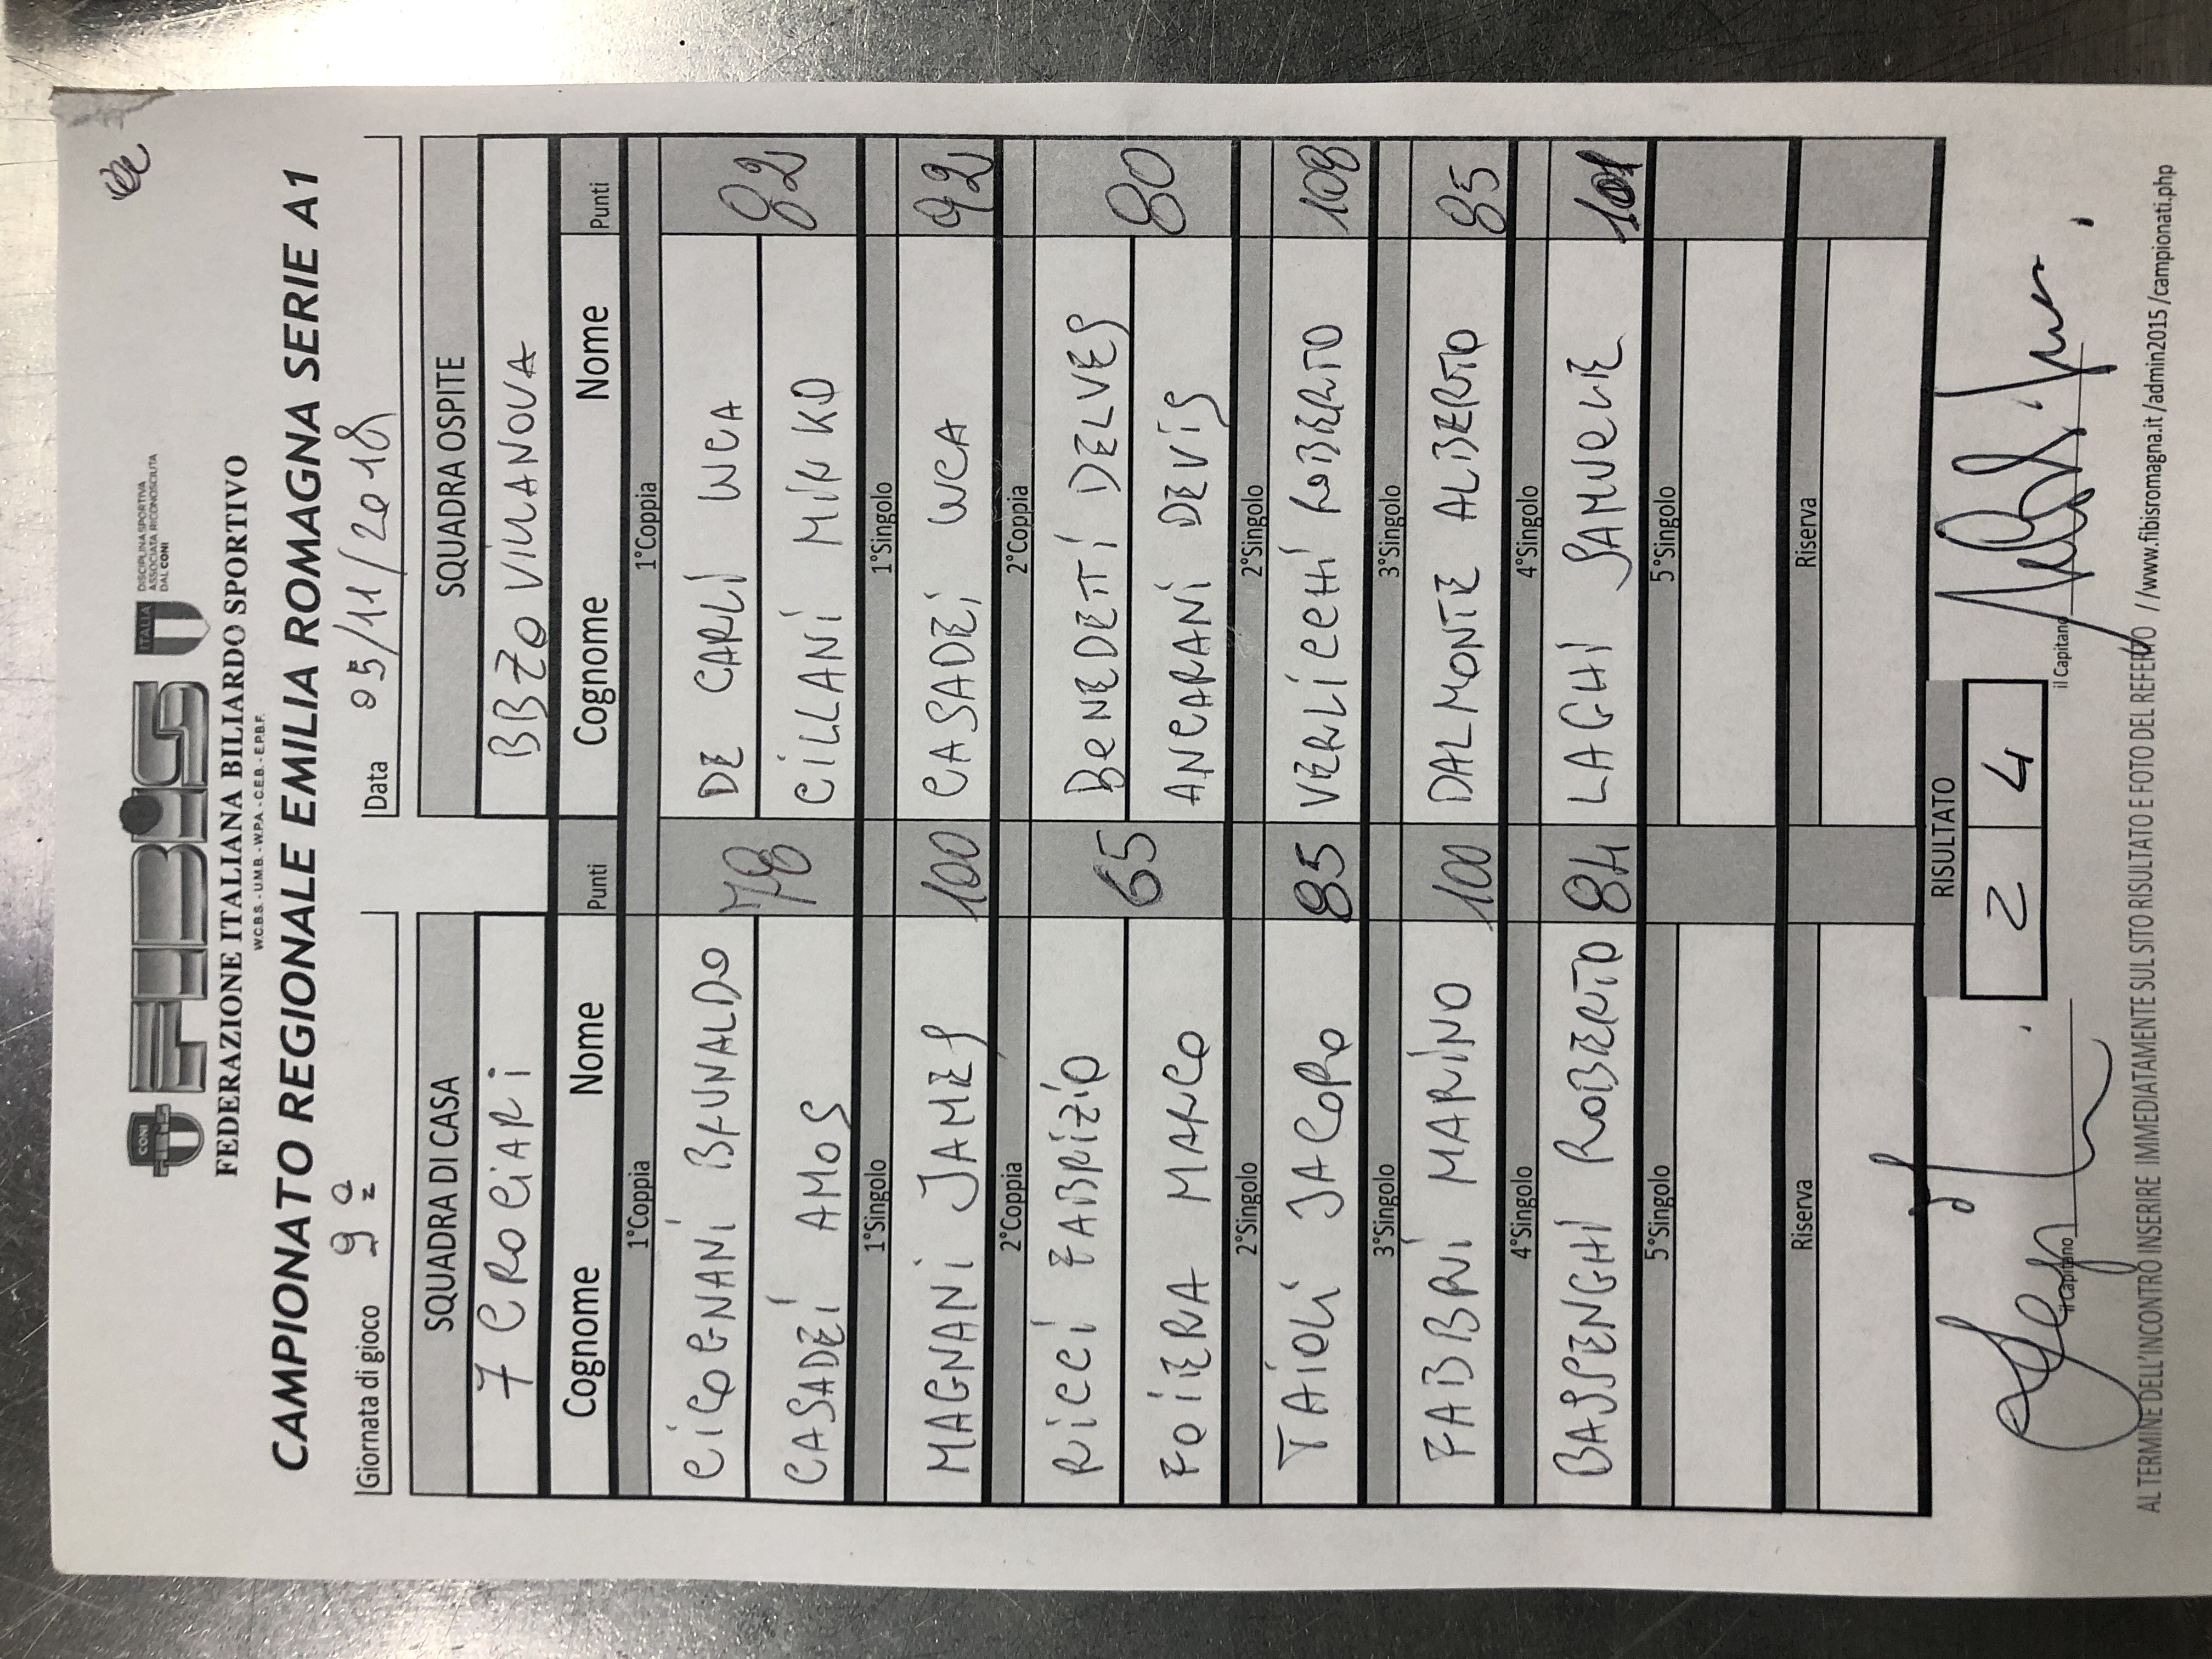 CONI FIBiS ITALIA DISCIPLINA SPORTIVA ASSOCIATA RICONOSCIUTA DAL CONI
FEDERAZIONE ITALIANA BILIARDO SPORTIVO
W.C.B.S. - U.M.B. - W.P.A. - C.E.B. - E.P.B.F.
CAMPIONATO REGIONALE EMILIA ROMAGNA SERIE A1
Giornata di gioco 9ª Data 05/11/2018
SQUADRA DI CASA SQUADRA OSPITE
7 CROCIARI BBZO VILLANOVA
Cognome Nome Punti Cognome Nome Punti
1°Coppia 1°Coppia
CICOGNANI BRUNALDO DE CARLI LUCA
78 82
CASADEI AMOS CILLANI MIRKO
1°Singolo 1°Singolo
MAGNANI JAMES 100 CASADEI LUCA 92
2°Coppia 2°Coppia
RICCI FABRIZIO BENEDETTI DELVES
65 80
FOIERA MARCO ANCARANI DEVIS
2°Singolo 2°Singolo
TAIOLI JACOPO 85 VERLICCHI ROBERTO 108
3°Singolo 3°Singolo
FABBRI MARINO 100 DALMONTE ALBERTO 85
4°Singolo 4°Singolo
BASSENGHI ROBERTO 84 LAGHI SAMUELE 101
5°Singolo 5°Singolo
Riserva Riserva
RISULTATO
2 4
il Capitano il Capitano
AL TERMINE DELL'INCONTRO INSERIRE IMMEDIATAMENTE SUL SITO RISULTATO E FOTO DEL REFERTO //www.fibisromagna.it/admin2015/campionati.php